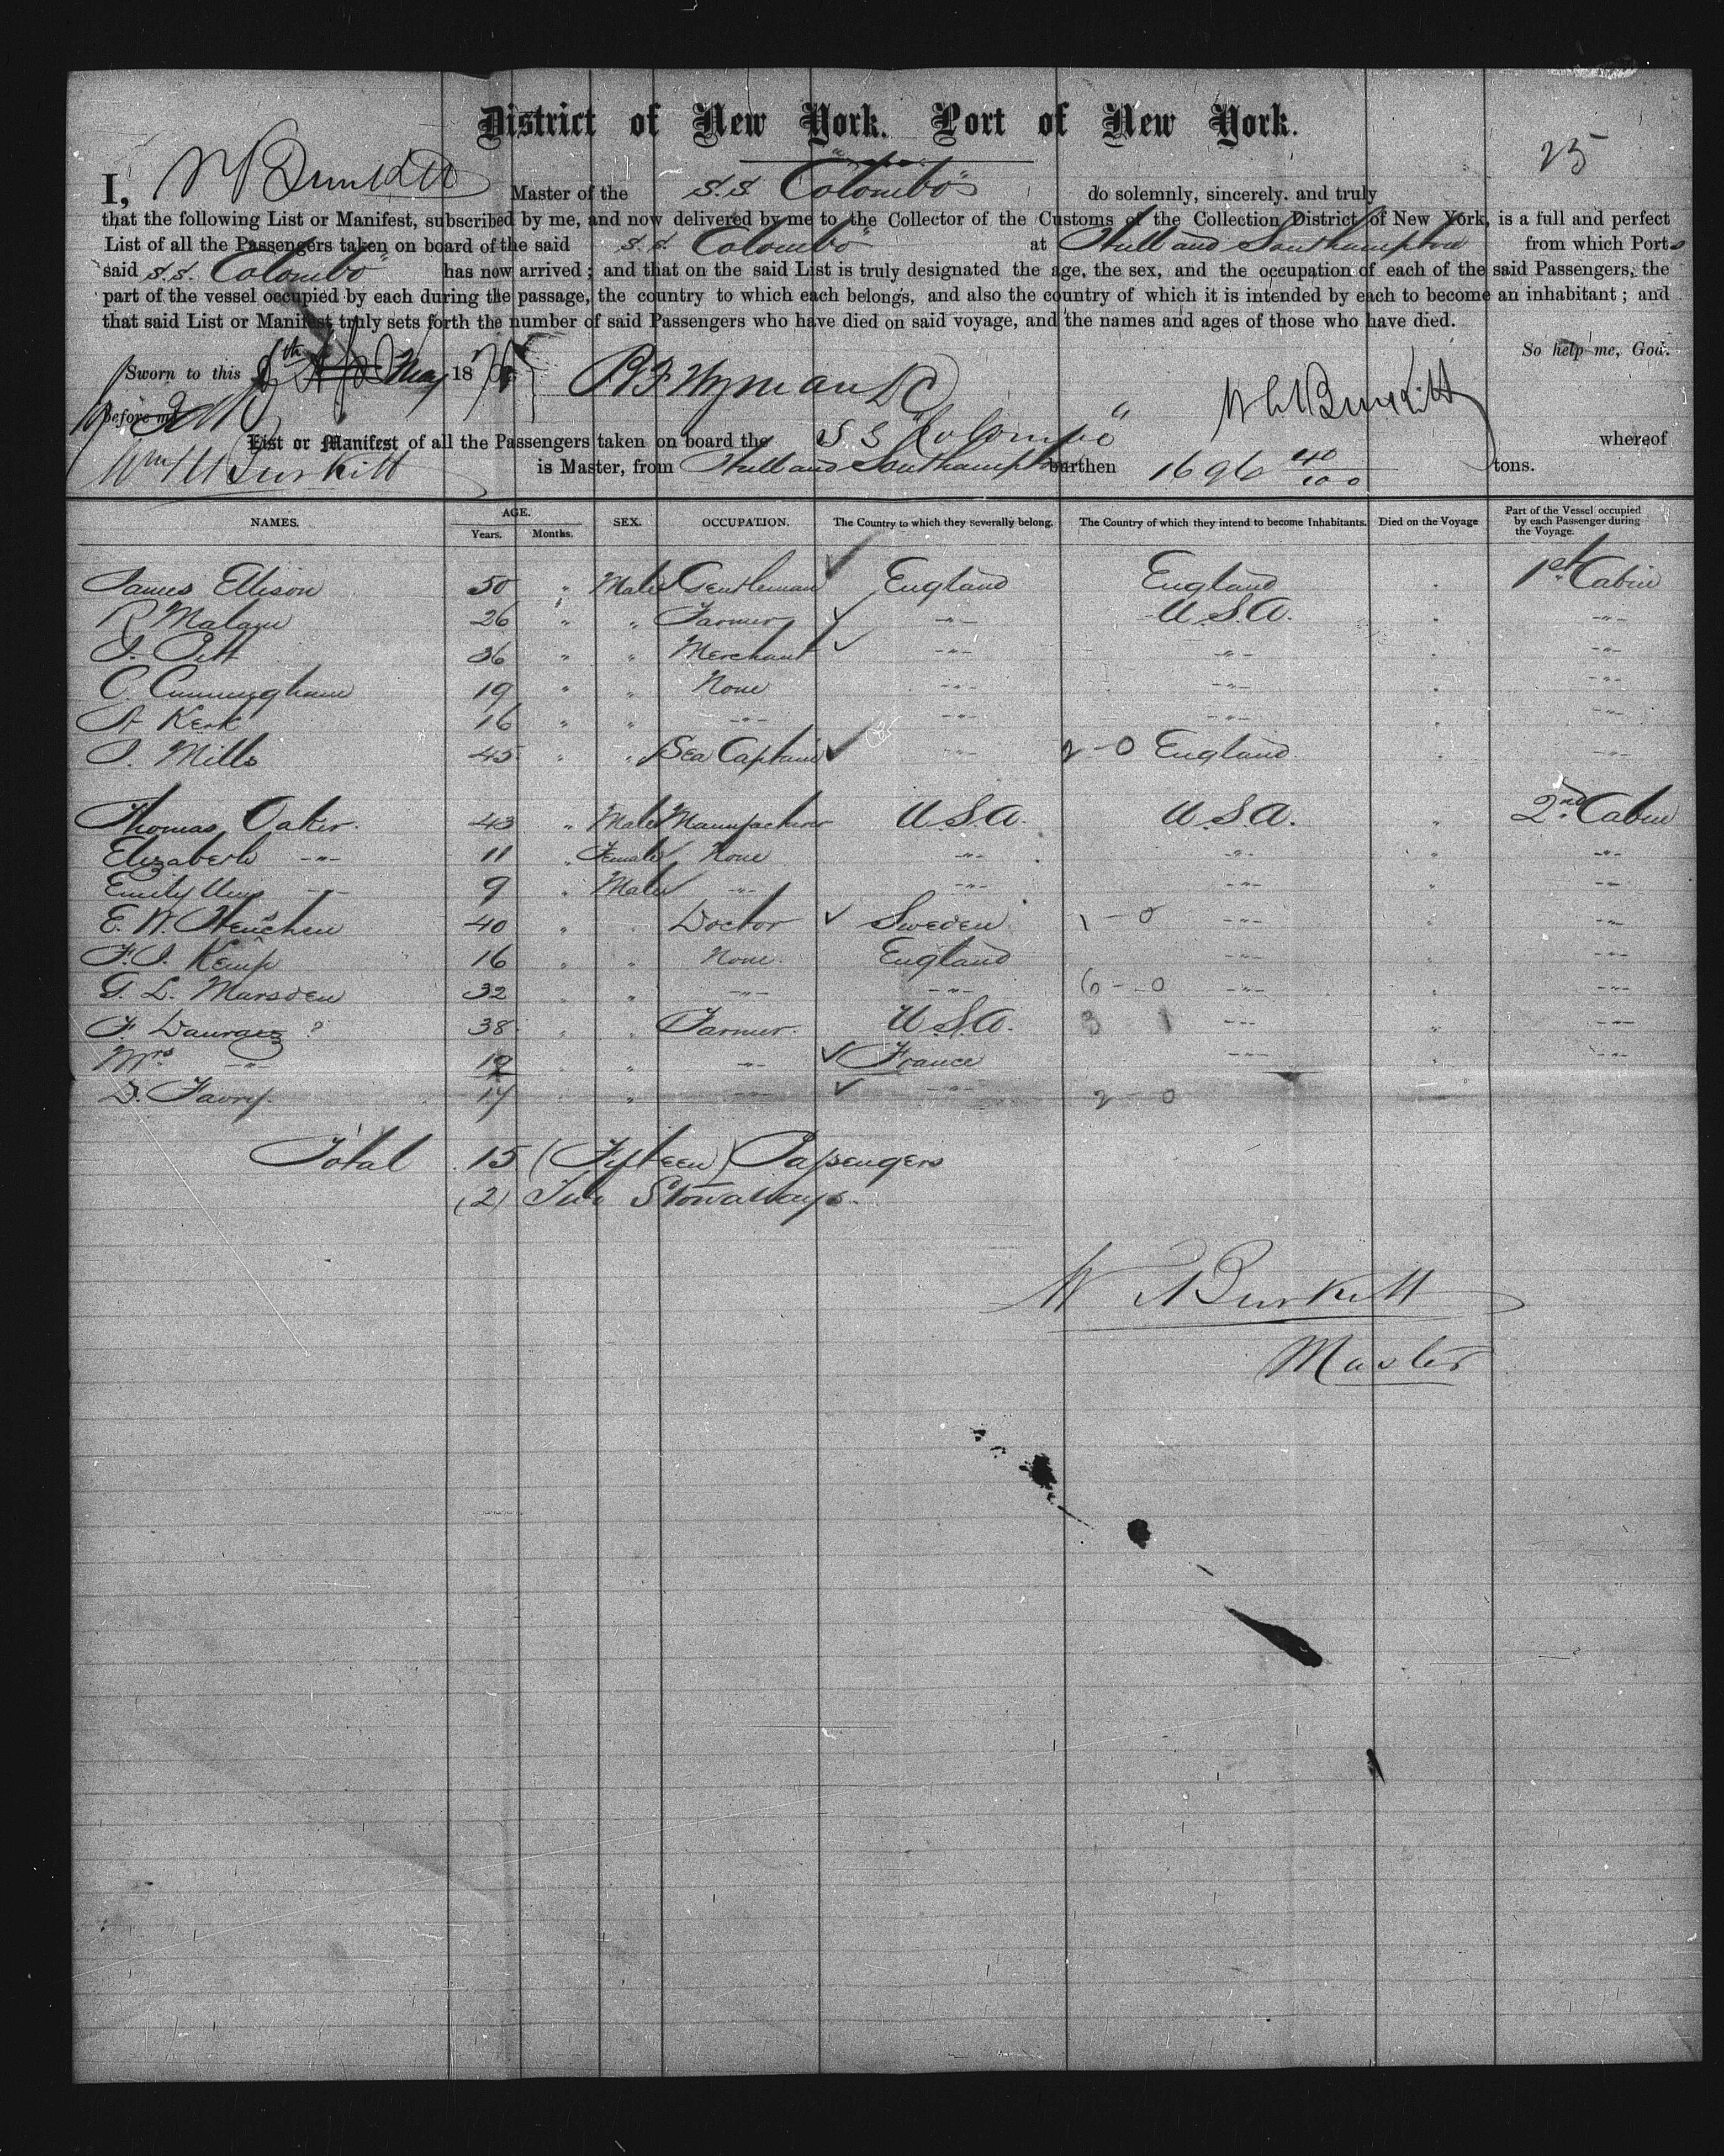 District of New York. Port of New York.
25
I, W Burkitt Master of the S.S. "Colombo" do solemnly, sincerely. and truly
that the following List or Manifest, subscribed by me, and now delivered by me to the Collector of the Customs of the Collection District of New York, is a full and perfect
List of all the Passengers taken on board of the said S.S. "Colombo" at Hull and Southampton from which Ports
said S.S. "Colombo" has now arrived; and that on the said List is truly designated the age, the sex, and the occupation of each of the said Passengers, the
part of the vessel occupied by each during the passage, the country to which each belongs, and also the country of which it is intended by each to become an inhabitant; and
that said List or Manifest truly sets forth the number of said Passengers who have died on said voyage, and the names and ages of those who have died.
So help me, God.
Sworn to this May 187
Before me
List or Manifest of all the Passengers taken on board the S S "Colombo" whereof
Wm Burkitt is Master, from Hull and Southampton burthen 1696 40/100 tons.
NAMES. AGE. SEX. OCCUPATION. The Country to which they severally belong. The Country of which they intend to become Inhabitants. Died on the Voyage Part of the Vessel occupied by each Passenger during the Voyage.
Years. Months.
James Ellison 50 " Male Gentleman England England 1st Cabin
R Malam 26 " " Farmer -"- U.S.A. -"-
J. Pitt 36 " " Merchant -"- -"- -"-
C. Cunningham 19 " " None -"- -"- -"-
A Kerk 16 " " -"- -"- -"- -"-
J. Mills 45 " " Sea Captain -"- 2-0 England -"-
Thomas Oaker. 43 " Male Manufacturer U.S.A. U.S.A. 2nd Cabin
Elizabeth -"- 11 " Female None -"- -"- -"-
Emily -"- 9 " Male -"- -"- -"- -"-
E. W. 40 " " Doctor Sweden 1-0 -"- -"-
F. J. Kemp 16 " " None. England -"- -"-
G. L. Marsden 32 " " -"- -"- 6-0 -"- -"-
F. ? 38 " " Farmer. U.S.A. 3 1 -"- -"-
Mrs -"- 12 " " -"- France -"- -"-
D. Favry. 17 " " -"- -"- 2-0 -"-
Total 15 (Fifteen) Passengers
(2) Two Stowaways.
W Burkitt
Master